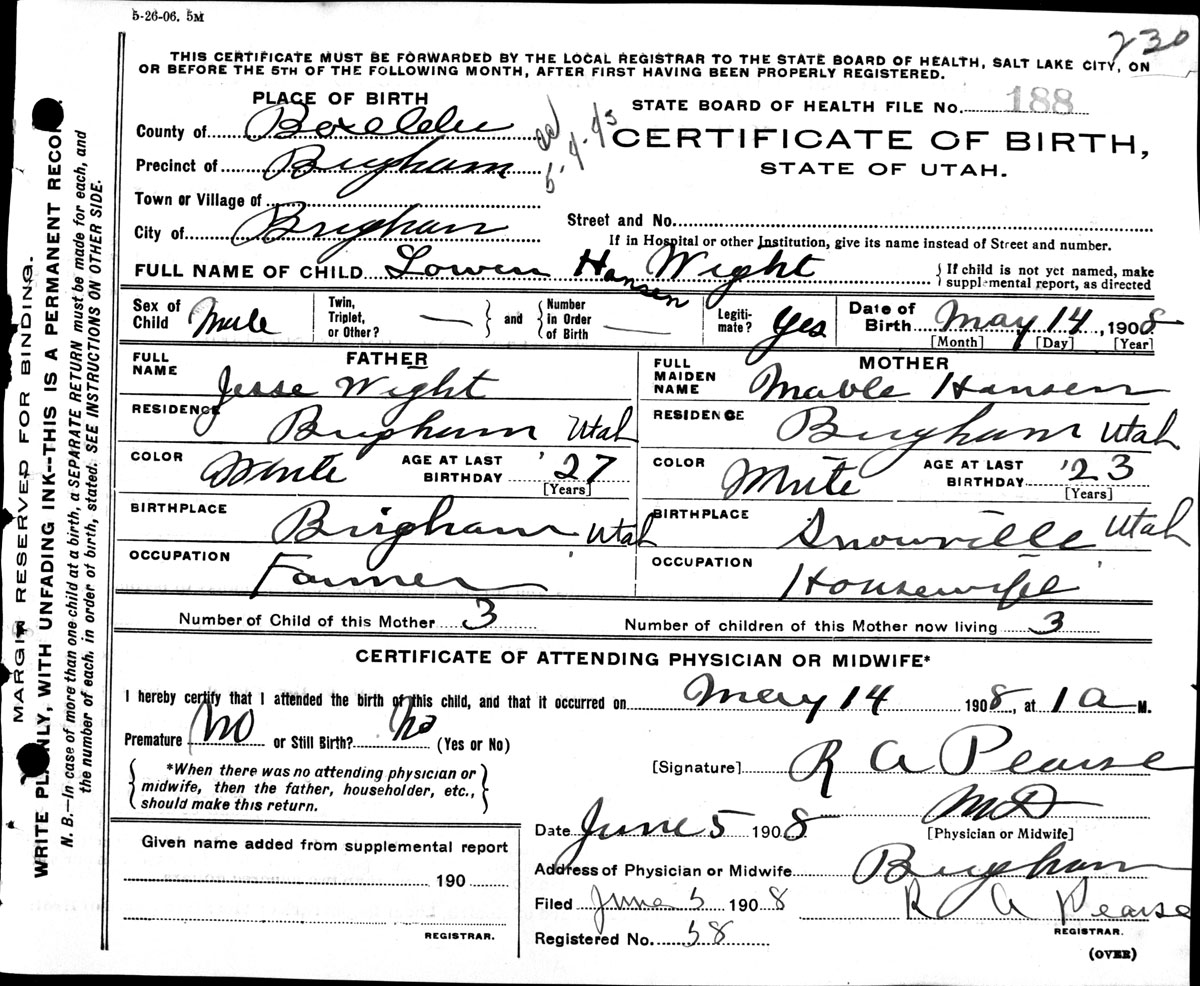 5-26-06. 5M
230
THIS CERTIFICATE MUST BE FORWARDED BY THE LOCAL REGISTRAR TO THE STATE BOARD OF HEALTH, SALT LAKE CITY, ON
OR BEFORE THE 5TH OF THE FOLLOWING MONTH, AFTER FIRST HAVING BEEN PROPERLY REGISTERED.
PLACE OF BIRTH
STATE BOARD OF HEALTH FILE No. 188
County of Boxelder
CERTIFICATE OF BIRTH,
Precinct of Brigham
STATE OF UTAH.
Town or Village of
Street and No.
City of Brigham
If in Hospital or other Institution, give its name instead of Street and number.
FULL NAME OF CHILD Lowen Hansen Wight
{ If child is not yet named, make
supplemental report, as directed
Sex of Child Male
Twin, Triplet, or Other? — } and { Number in Order of Birth —
Legiti- mate? Yes
Date of Birth May 14, 1908
[Month] [Day] [Year]
FATHER
MOTHER
FULL NAME Jesse Wight
FULL MAIDEN NAME Mable Hansen
RESIDENCE Brigham Utah
RESIDENCE Brigham Utah
COLOR White AGE AT LAST BIRTHDAY '27 [Years]
COLOR White AGE AT LAST BIRTHDAY '23 [Years]
BIRTHPLACE Brigham Utah
BIRTHPLACE Snowville Utah
OCCUPATION Farmer
OCCUPATION Housewife
Number of Child of this Mother 3
Number of children of this Mother now living 3
CERTIFICATE OF ATTENDING PHYSICIAN OR MIDWIFE*
I hereby certify that I attended the birth of this child, and that it occurred on May 14 1908, at 1 a M.
Premature No or Still Birth? No (Yes or No)
[Signature] R A Pearse
{ *When there was no attending physician or
midwife, then the father, householder, etc.,
should make this return. }
MD
Date June 5 1908
[Physician or Midwife]
Given name added from supplemental report
190
REGISTRAR.
Address of Physician or Midwife Brigham
Filed June 5 1908 R A Pearse
REGISTRAR.
Registered No. 58
(OVER)
MARGIN RESERVED FOR BINDING.
WRITE PLAINLY, WITH UNFADING INK--THIS IS A PERMANENT RECORD.
N. B.—In case of more than one child at a birth, a SEPARATE RETURN must be made for each, and
the number of each, in order of birth, stated. SEE INSTRUCTIONS ON OTHER SIDE.